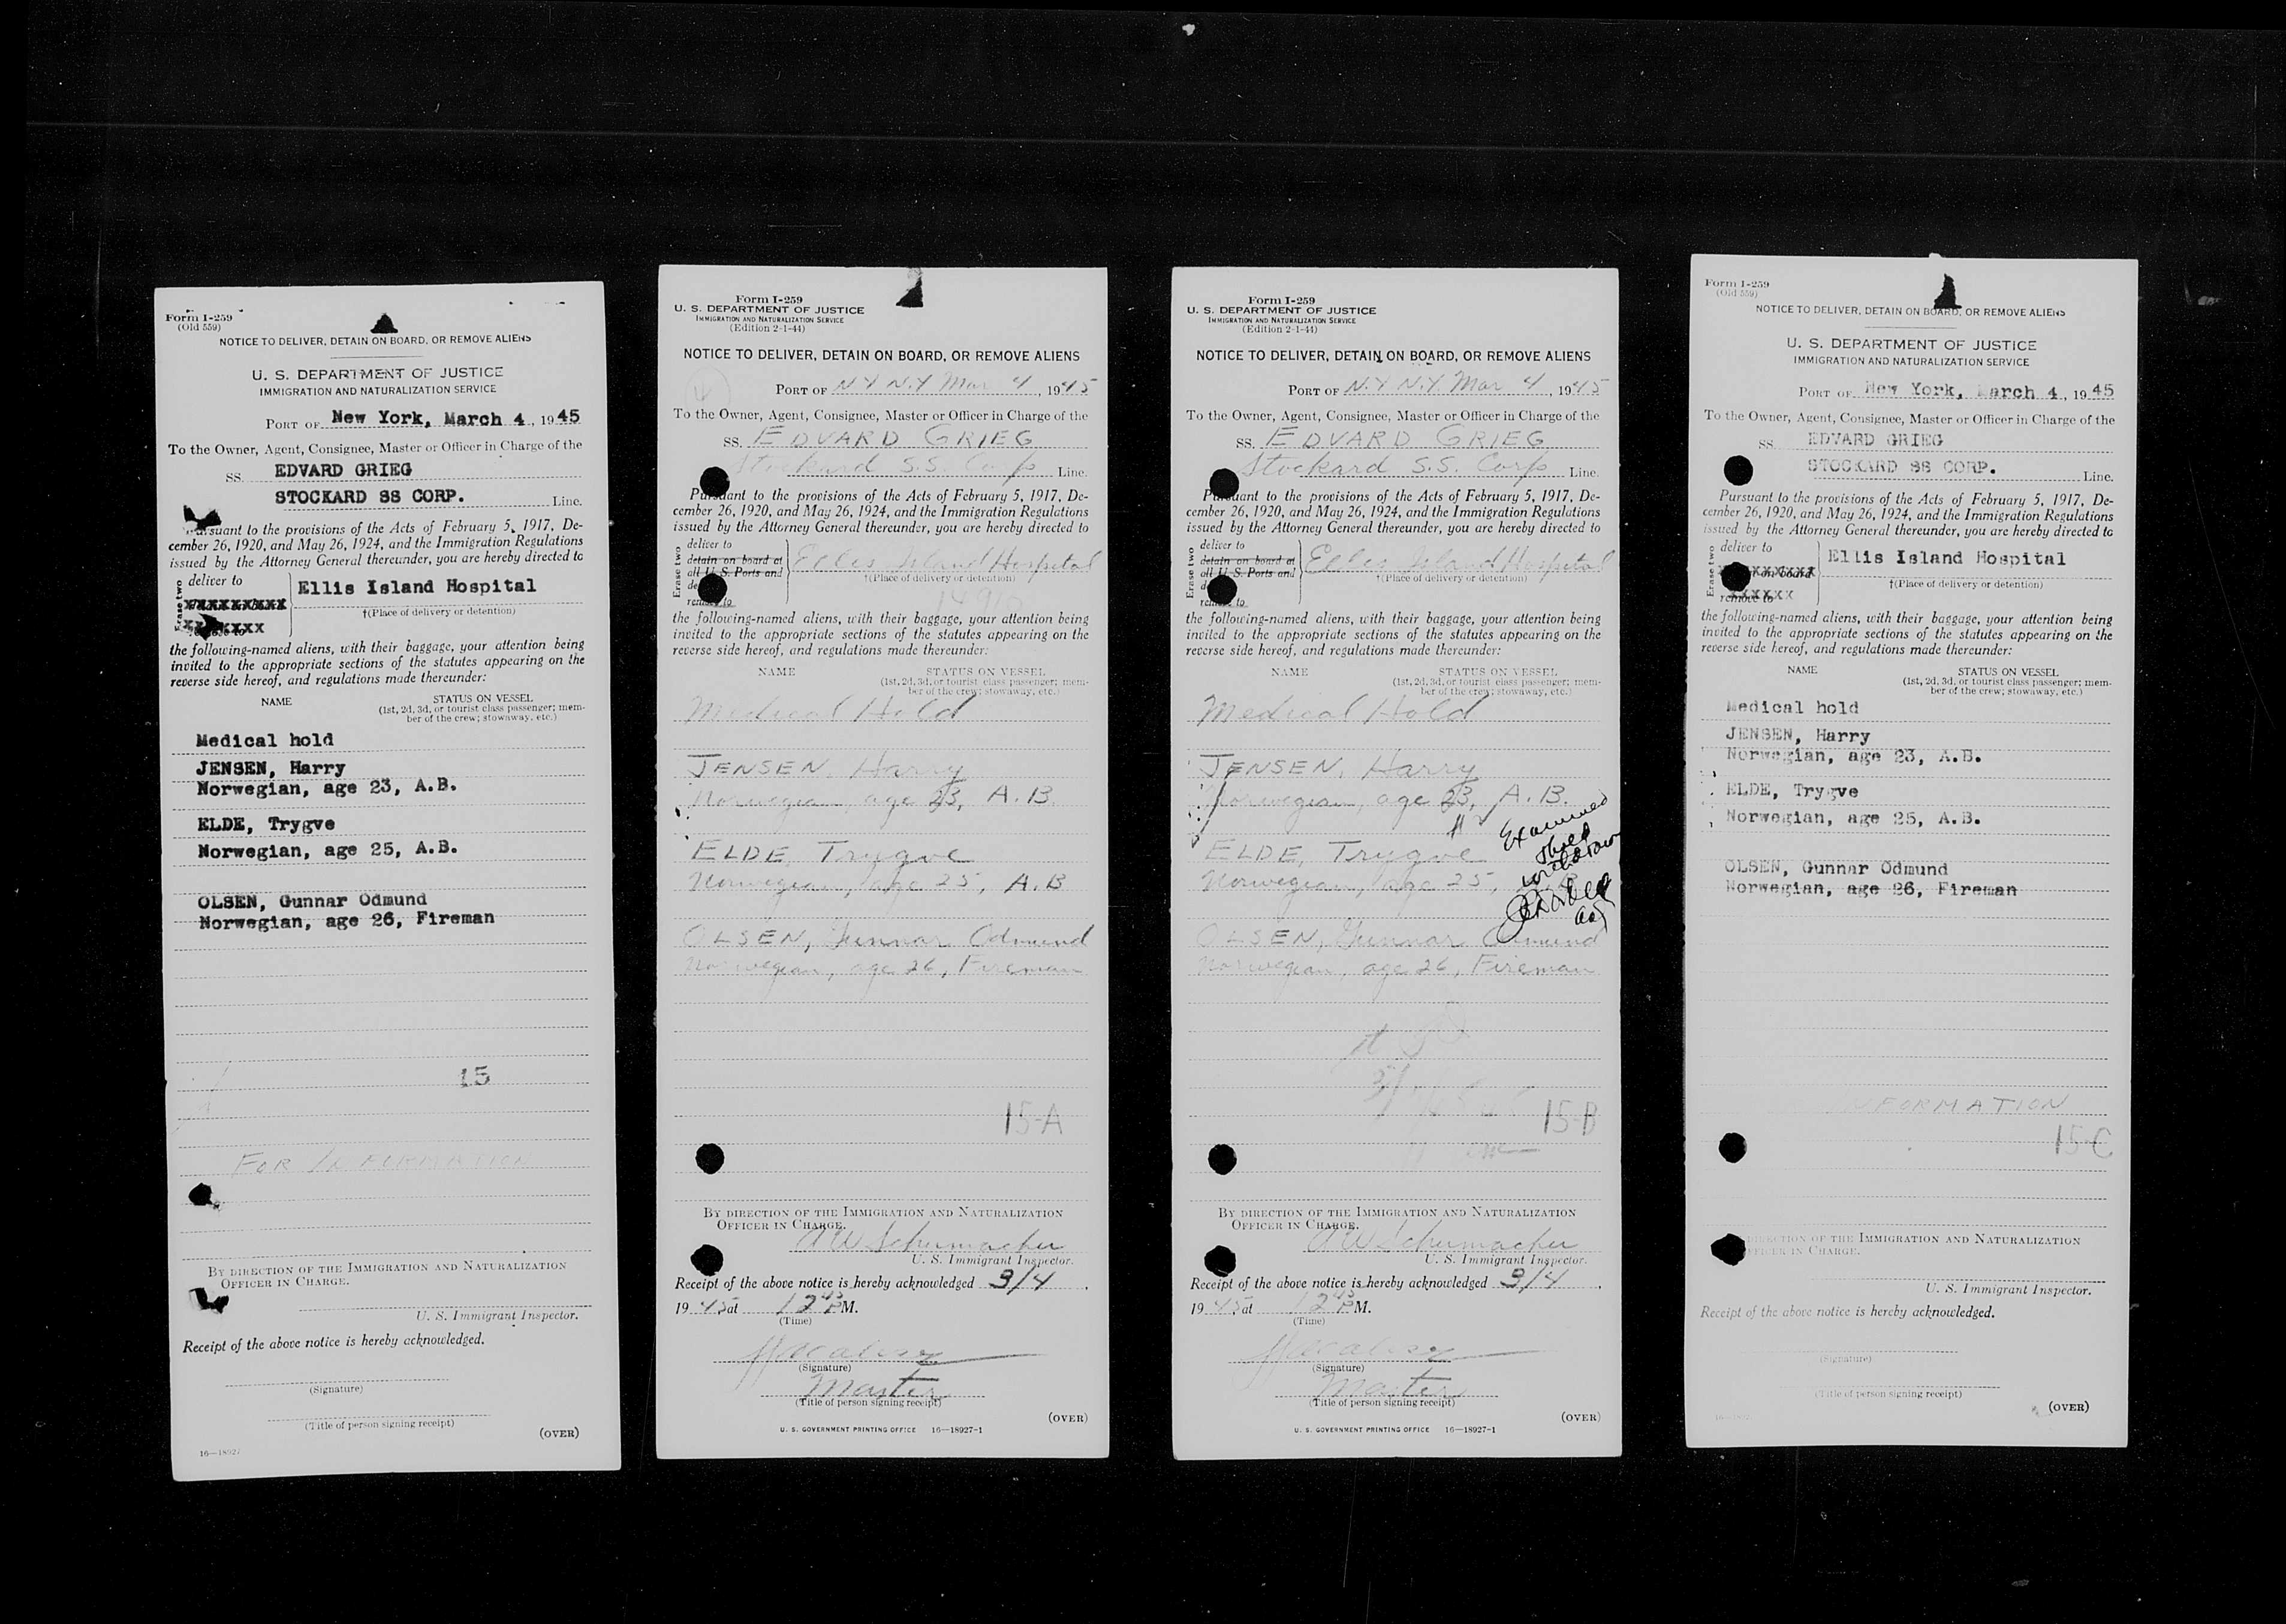 Form I-259
(Old 559)
NOTICE TO DELIVER, DETAIN ON BOARD, OR REMOVE ALIENS
U. S. DEPARTMENT OF JUSTICE
IMMIGRATION AND NATURALIZATION SERVICE
PORT OF New York, March 4, 1945
To the Owner, Agent, Consignee, Master or Officer in Charge of the
SS. EDVARD GRIEG
STOCKARD SS CORP. Line.
Pursuant to the provisions of the Acts of February 5, 1917, De-
cember 26, 1920, and May 26, 1924, and the Immigration Regulations
issued by the Attorney General thereunder, you are hereby directed to
Erase two
deliver to
Ellis Island Hospital
†(Place of delivery or detention)
the following-named aliens, with their baggage, your attention being
invited to the appropriate sections of the statutes appearing on the
reverse side hereof, and regulations made thereunder:
NAME STATUS ON VESSEL
(1st, 2d, 3d, or tourist class passenger; mem-
ber of the crew; stowaway, etc.)
Medical hold
JENSEN, Harry
Norwegian, age 23, A.B.
ELDE, Trygve
Norwegian, age 25, A.B.
OLSEN, Gunnar Odmund
Norwegian, age 26, Fireman
15
FOR INFORMATION
BY DIRECTION OF THE IMMIGRATION AND NATURALIZATION
OFFICER IN CHARGE.
U. S. Immigrant Inspector.
Receipt of the above notice is hereby acknowledged.
(Signature)
(Title of person signing receipt)
(OVER)
16—18927
Form I-259
U. S. DEPARTMENT OF JUSTICE
IMMIGRATION AND NATURALIZATION SERVICE
(Edition 2-1-44)
NOTICE TO DELIVER, DETAIN ON BOARD, OR REMOVE ALIENS
PORT OF N.Y N.Y Mar 4, 1945
To the Owner, Agent, Consignee, Master or Officer in Charge of the
SS. EDVARD GRIEG
Stockard S.S. Corp Line.
Pursuant to the provisions of the Acts of February 5, 1917, De-
cember 26, 1920, and May 26, 1924, and the Immigration Regulations
issued by the Attorney General thereunder, you are hereby directed to
Erase two
deliver to
detain on board at
all U. S. Ports and
remove to
Ellis Island Hospital
†(Place of delivery or detention)
the following-named aliens, with their baggage, your attention being
invited to the appropriate sections of the statutes appearing on the
reverse side hereof, and regulations made thereunder:
NAME STATUS ON VESSEL
(1st, 2d, 3d, or tourist class passenger; mem-
ber of the crew; stowaway, etc.)
Medical Hold
JENSEN, Harry
Norwegian, age 23, A.B
ELDE, Trygve
Norwegian, age 25, A.B
OLSEN, Gunnar Odmund
Norwegian, age 26, Fireman
15-A
BY DIRECTION OF THE IMMIGRATION AND NATURALIZATION
OFFICER IN CHARGE.
AW Schumacher
U. S. Immigrant Inspector.
Receipt of the above notice is hereby acknowledged 3/4
1945 at 12 45 PM.
(Time)
(Signature)
Master
(Title of person signing receipt)
(OVER)
U. S. GOVERNMENT PRINTING OFFICE 16—18927-1
Form I-259
U. S. DEPARTMENT OF JUSTICE
IMMIGRATION AND NATURALIZATION SERVICE
(Edition 2-1-44)
NOTICE TO DELIVER, DETAIN ON BOARD, OR REMOVE ALIENS
PORT OF N.Y N.Y. Mar 4, 1945
To the Owner, Agent, Consignee, Master or Officer in Charge of the
SS. EDVARD GRIEG
Stockard S.S. Corp Line.
Pursuant to the provisions of the Acts of February 5, 1917, De-
cember 26, 1920, and May 26, 1924, and the Immigration Regulations
issued by the Attorney General thereunder, you are hereby directed to
Erase two
deliver to
detain on board at
all U. S. Ports and
remove to
Ellis Island Hospital
†(Place of delivery or detention)
the following-named aliens, with their baggage, your attention being
invited to the appropriate sections of the statutes appearing on the
reverse side hereof, and regulations made thereunder:
NAME STATUS ON VESSEL
(1st, 2d, 3d, or tourist class passenger; mem-
ber of the crew; stowaway, etc.)
Medical Hold
JENSEN, Harry
Norwegian, age 23, A.B.
Examined
ELDE, Trygve
Norwegian, age 25,
OLSEN, Gunnar Odmund
Norwegian, age 26, Fireman
15-B
BY DIRECTION OF THE IMMIGRATION AND NATURALIZATION
OFFICER IN CHARGE.
AW Schumacher
U. S. Immigrant Inspector.
Receipt of the above notice is hereby acknowledged 3/4
1945 at 12 45 PM.
(Time)
(Signature)
Master
(Title of person signing receipt)
(OVER)
U. S. GOVERNMENT PRINTING OFFICE 16—18927-1
Form I-259
(Old 559)
NOTICE TO DELIVER, DETAIN ON BOARD, OR REMOVE ALIENS
U. S. DEPARTMENT OF JUSTICE
IMMIGRATION AND NATURALIZATION SERVICE
PORT OF New York, March 4, 1945
To the Owner, Agent, Consignee, Master or Officer in Charge of the
SS. EDVARD GRIEG
STOCKARD SS CORP. Line.
Pursuant to the provisions of the Acts of February 5, 1917, De-
cember 26, 1920, and May 26, 1924, and the Immigration Regulations
issued by the Attorney General thereunder, you are hereby directed to
Erase two
deliver to
on board
remove to
Ellis Island Hospital
†(Place of delivery or detention)
the following-named aliens, with their baggage, your attention being
invited to the appropriate sections of the statutes appearing on the
reverse side hereof, and regulations made thereunder:
NAME STATUS ON VESSEL
(1st, 2d, 3d, or tourist class passenger; mem-
ber of the crew; stowaway, etc.)
Medical hold
JENSEN, Harry
Norwegian, age 23, A.B.
ELDE, Trygve
Norwegian, age 25, A.B.
OLSEN, Gunnar Odmund
Norwegian, age 26, Fireman
INFORMATION
15-C
BY DIRECTION OF THE IMMIGRATION AND NATURALIZATION
OFFICER IN CHARGE.
U. S. Immigrant Inspector.
Receipt of the above notice is hereby acknowledged.
(Signature)
(Title of person signing receipt)
(OVER)